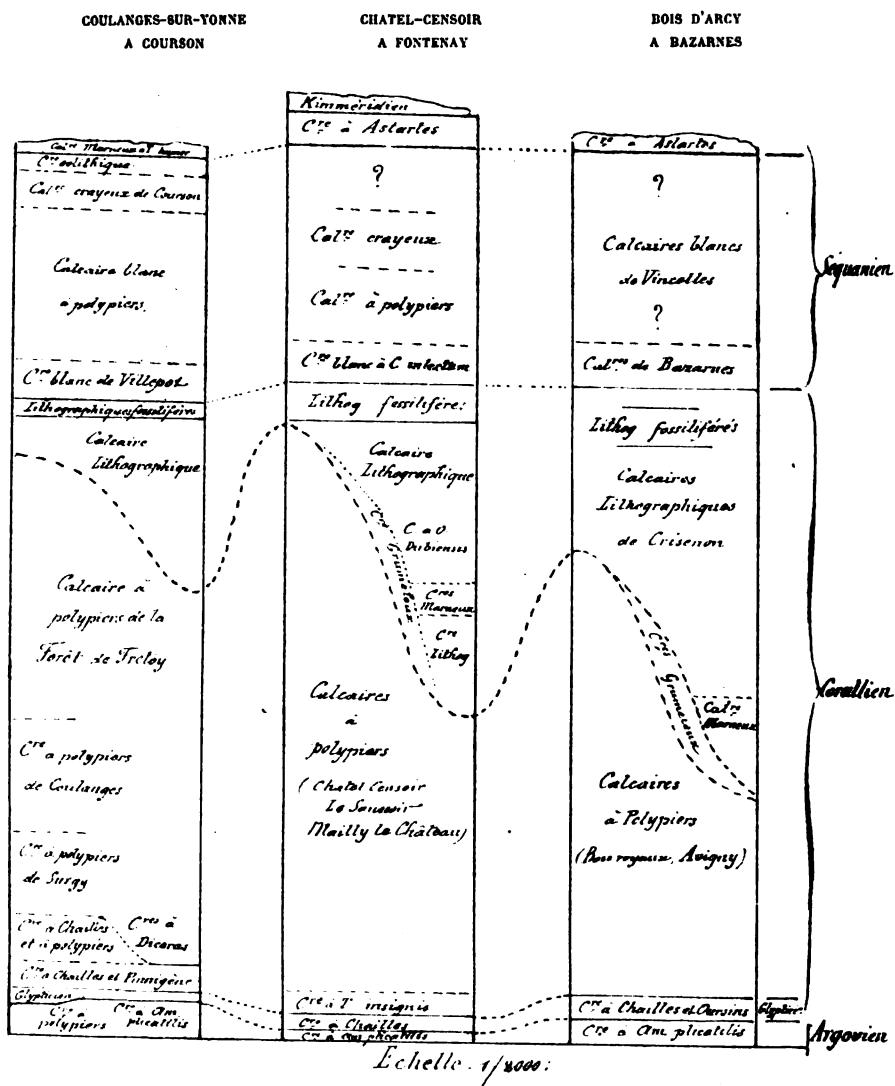 COULANGES-SUR-YONNE
A COURSON
CHATEL-CENSOIR
A FONTENAY
BOIS D'ARCY
A BAZARNES
Calre Marneux et
Cre oolithique
Calre crayeux de Courson
Calcaire blanc
à polypiers.
Cre blanc de Villepot
Lithographiques fossilifères
Calcaire
Lithographique
Calcaire à
polypiers de la
Forêt de Fretoy
Cre à polypiers
de Coulanges
Cre à polypiers
de Surgy
Cre à Chailles
et à polypiers
Cres à
Diceras
Cre à Chailles et Pinnigène
Glypticien
Cre à
polypiers
Cre à Am
plicatilis
Kimméridien
Cre à Astartes
?
Calre crayeux
Calre à polypiers
Cre blanc à C
Lithog fossilifère:
Calcaire
Lithographique
Cres Grumeleux
C à O
Dubiensis
Cres
Marneux
Cre
Lithog
Calcaires
à
polypiers
(Chatel Censoir
Le Saussoir
Mailly le Château)
Cre à T insignis
Cre à Chailles
Cre à am plicatilis
Cre à Astartes
?
Calcaires blancs
de Vincelles
?
Calres de Bazarnes
Lithog fossilifères
Calcaires
Lithographiques
de Crisenon
Cres Grumeleux
Calre
Marneux
Calcaires
à Polypiers
(Bois royaux, Avigny)
Cre à Chailles et Oursins
Glypticien
Cre à Am plicatilis
Séquanien
Corallien
Argovien
Echelle. 1/2000: